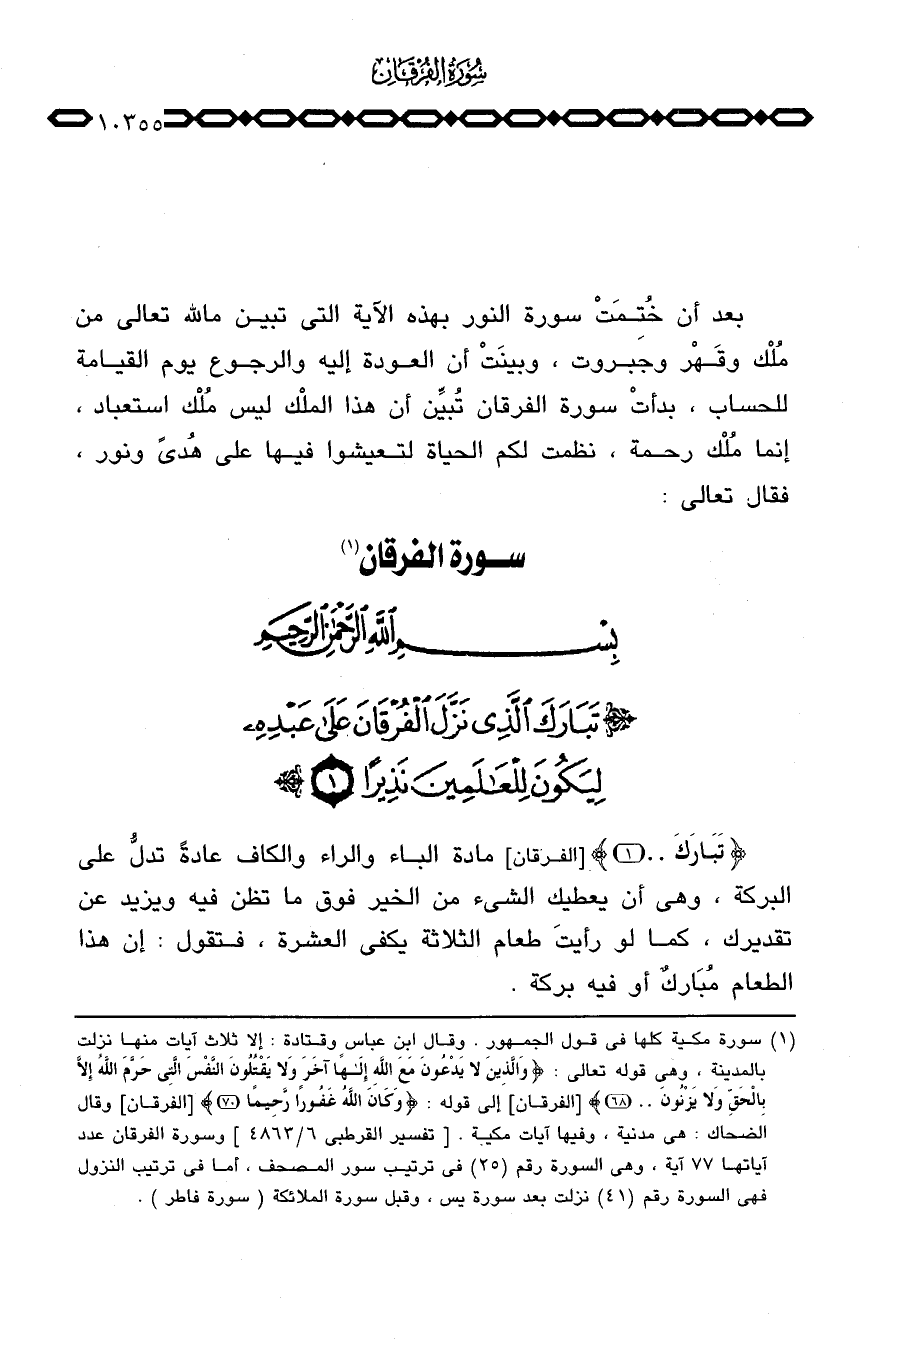 سُورَةُ الفُرْقَانِ
١٠٣٥٥
بعد أن خُتِمَتْ سورة النور بهذه الآية التى تبين مالله تعالى من
مُلْك وقَهْر وجَبروت ، وبينَتْ أن العودة إليه والرجوع يوم القيامة
للحساب ، بدأتْ سورة الفرقان تُبيِّن أن هذا الملْك ليس مُلْك استعباد ،
إنما مُلْك رحمة ، نظمت لكم الحياة لتعيشوا فيها على هُدىً ونور ،
فقال تعالى :
سورة الفرقان(١)
بِسْمِ اللَّهِ الرَّحْمَٰنِ الرَّحِيمِ
﴿ تَبَارَكَ ٱلَّذِى نَزَّلَ ٱلْفُرْقَانَ عَلَىٰ عَبْدِهِۦ
لِيَكُونَ لِلْعَـٰلَمِينَ نَذِيرًا ١ ﴾
﴿ تَبَارَكَ .. (١) ﴾ [الفرقان] مادة الباء والراء والكاف عادةً تدلُّ على
البركة ، وهى أن يعطيك الشىء من الخير فوق ما تظن فيه ويزيد عن
تقديرك ، كما لو رأيتَ طعام الثلاثة يكفى العشرة ، فتقول : إن هذا
الطعام مُبَاركٌ أو فيه بركة .
(١) سورة مكية كلها فى قول الجمهور . وقال ابن عباس وقتادة : إلا ثلاث آيات منها نزلت
بالمدينة ، وهى قوله تعالى : ﴿ وَالَّذِينَ لا يَدْعُونَ مَعَ اللَّهِ إِلَـٰهًا آخَرَ وَلا يَقْتُلُونَ النَّفْسَ الَّتِي حَرَّمَ اللَّهُ إِلاَّ
بِالْحَقِّ وَلا يَزْنُونَ .. (٦٨) ﴾ [الفرقان] إلى قوله : ﴿ وَكَانَ اللَّهُ غَفُورًا رَّحِيمًا (٧٠) ﴾ [الفرقان] وقال
الضحاك : هى مدنية ، وفيها آيات مكية . [ تفسير القرطبى ٤٨٦٣/٦ ] وسورة الفرقان عدد
آياتها ٧٧ آية ، وهى السورة رقم (٢٥) فى ترتيب سور المصحف ، أما فى ترتيب النزول
فهى السورة رقم (٤١) نزلت بعد سورة يس ، وقبل سورة الملائكة ( سورة فاطر ) .